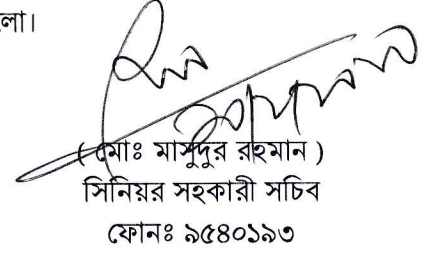 লো।
( মোঃ মাসুদুর রহমান )
সিনিয়র সহকারী সচিব
ফোনঃ ৯৫৪০১৯৩